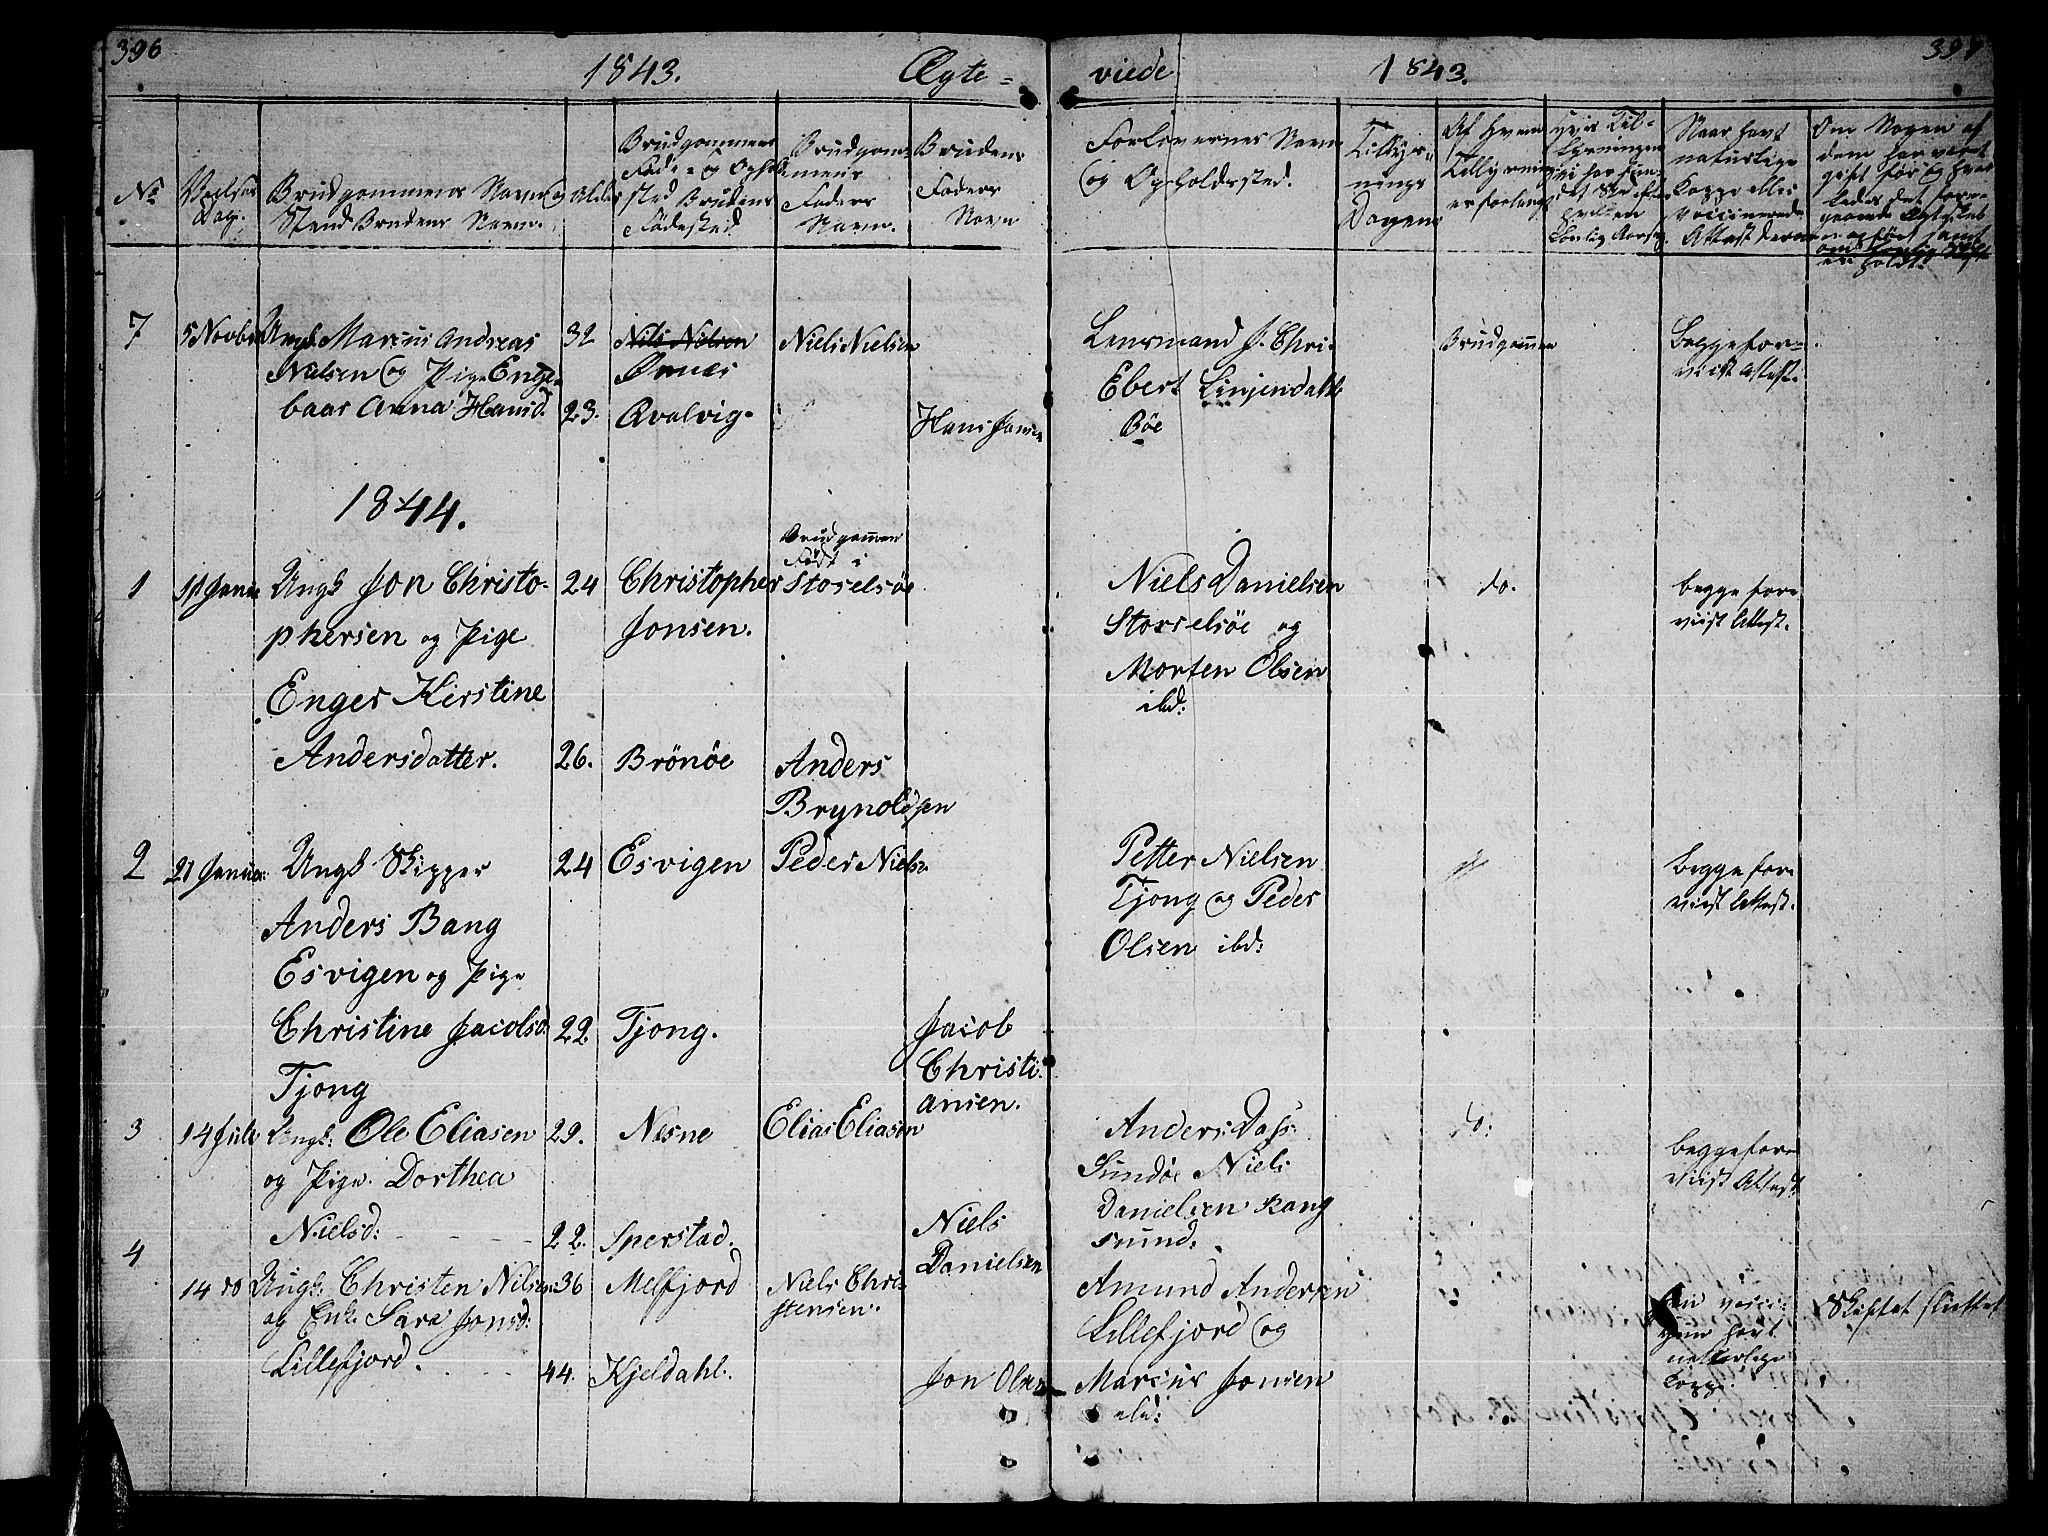 396
1843.
Ægte=
viede
1843.
No
Vielses Dag.
Brudgommens Navn og
Stand Brudens Navn.
Alder
Brudgommens
Føde- og Opholds
sted Brudens
Fødested
Brudgom-
mens
Faders
Navn.
Brudens
Faders
Navn
Forlovernes Navn
og Opholdssted.
Tillys-
nings
Dagene
Af Hvem
Tillysning
er forlangt
Naar havt
naturlige
Kopper eller
vaccinerede
Attest derom
Om Nogen af
dem har været
gift før og hvor-
ledes det fore-
7
5 Novbr
Ungk. Marcus Andreas
Nielsen og Pige Enge-
baar Anna Hansd.
32
23.
Nils Nilsen
Ørnes
Qvalvig.
Niels Nielsen
Hans Jansen
Lensmand J. Chri.
Ebert Linjendahl
Bøe
Brudgommen
Begge fore-
viist Attest.
1844.
1
11 Janua
Ungk Jon Christo-
phersen og Pige
Enger Kirstine
Andersdatter.
24
26.
Christopher
Jonsen.
Brönöe
Brudgommen
Født i
Storselsöe
Anders
Brynoldsen
Niels Danielsen
Storselsöe og
Morten Olsen
ibd:
do.
begge fore
viist Attest.
2
21 Januar:
Ungk Skipper
Anders Bang
Esvigen og Pige
Christine Jacobsd:
Tjong
24
22.
Esvigen
Tjong.
Peder Niels.
Jacob
Christi-
ansen.
Petter Nielsen
Tjong og Peder
Olsen ibd:
begge fore
viist Attest.
3
14 Juli
Ungk: Ole Eliasen
og Pige. Dorthea
Nielsd:
29.
22.
Nesne
Sperstad.
Elias Eliasen
Niels
Danielsen
Anders Dass:
Sundöe Niels
Danielsen Rang
sund.
do:
begge fore
viist Attest.
4
14 do
Ungk: Christen Nilsen
og Enk. Sara Jonsd:
Lillefjord.
36
44.
Melfjord
Kjeldahl.
Niels Chri-
stensen.
Jon Olsen
Amund Andersen
Lillefjord og
Marcus Jonsen
ibd:
hun havt
naturlige
Kopp.
Skiftet sluttet